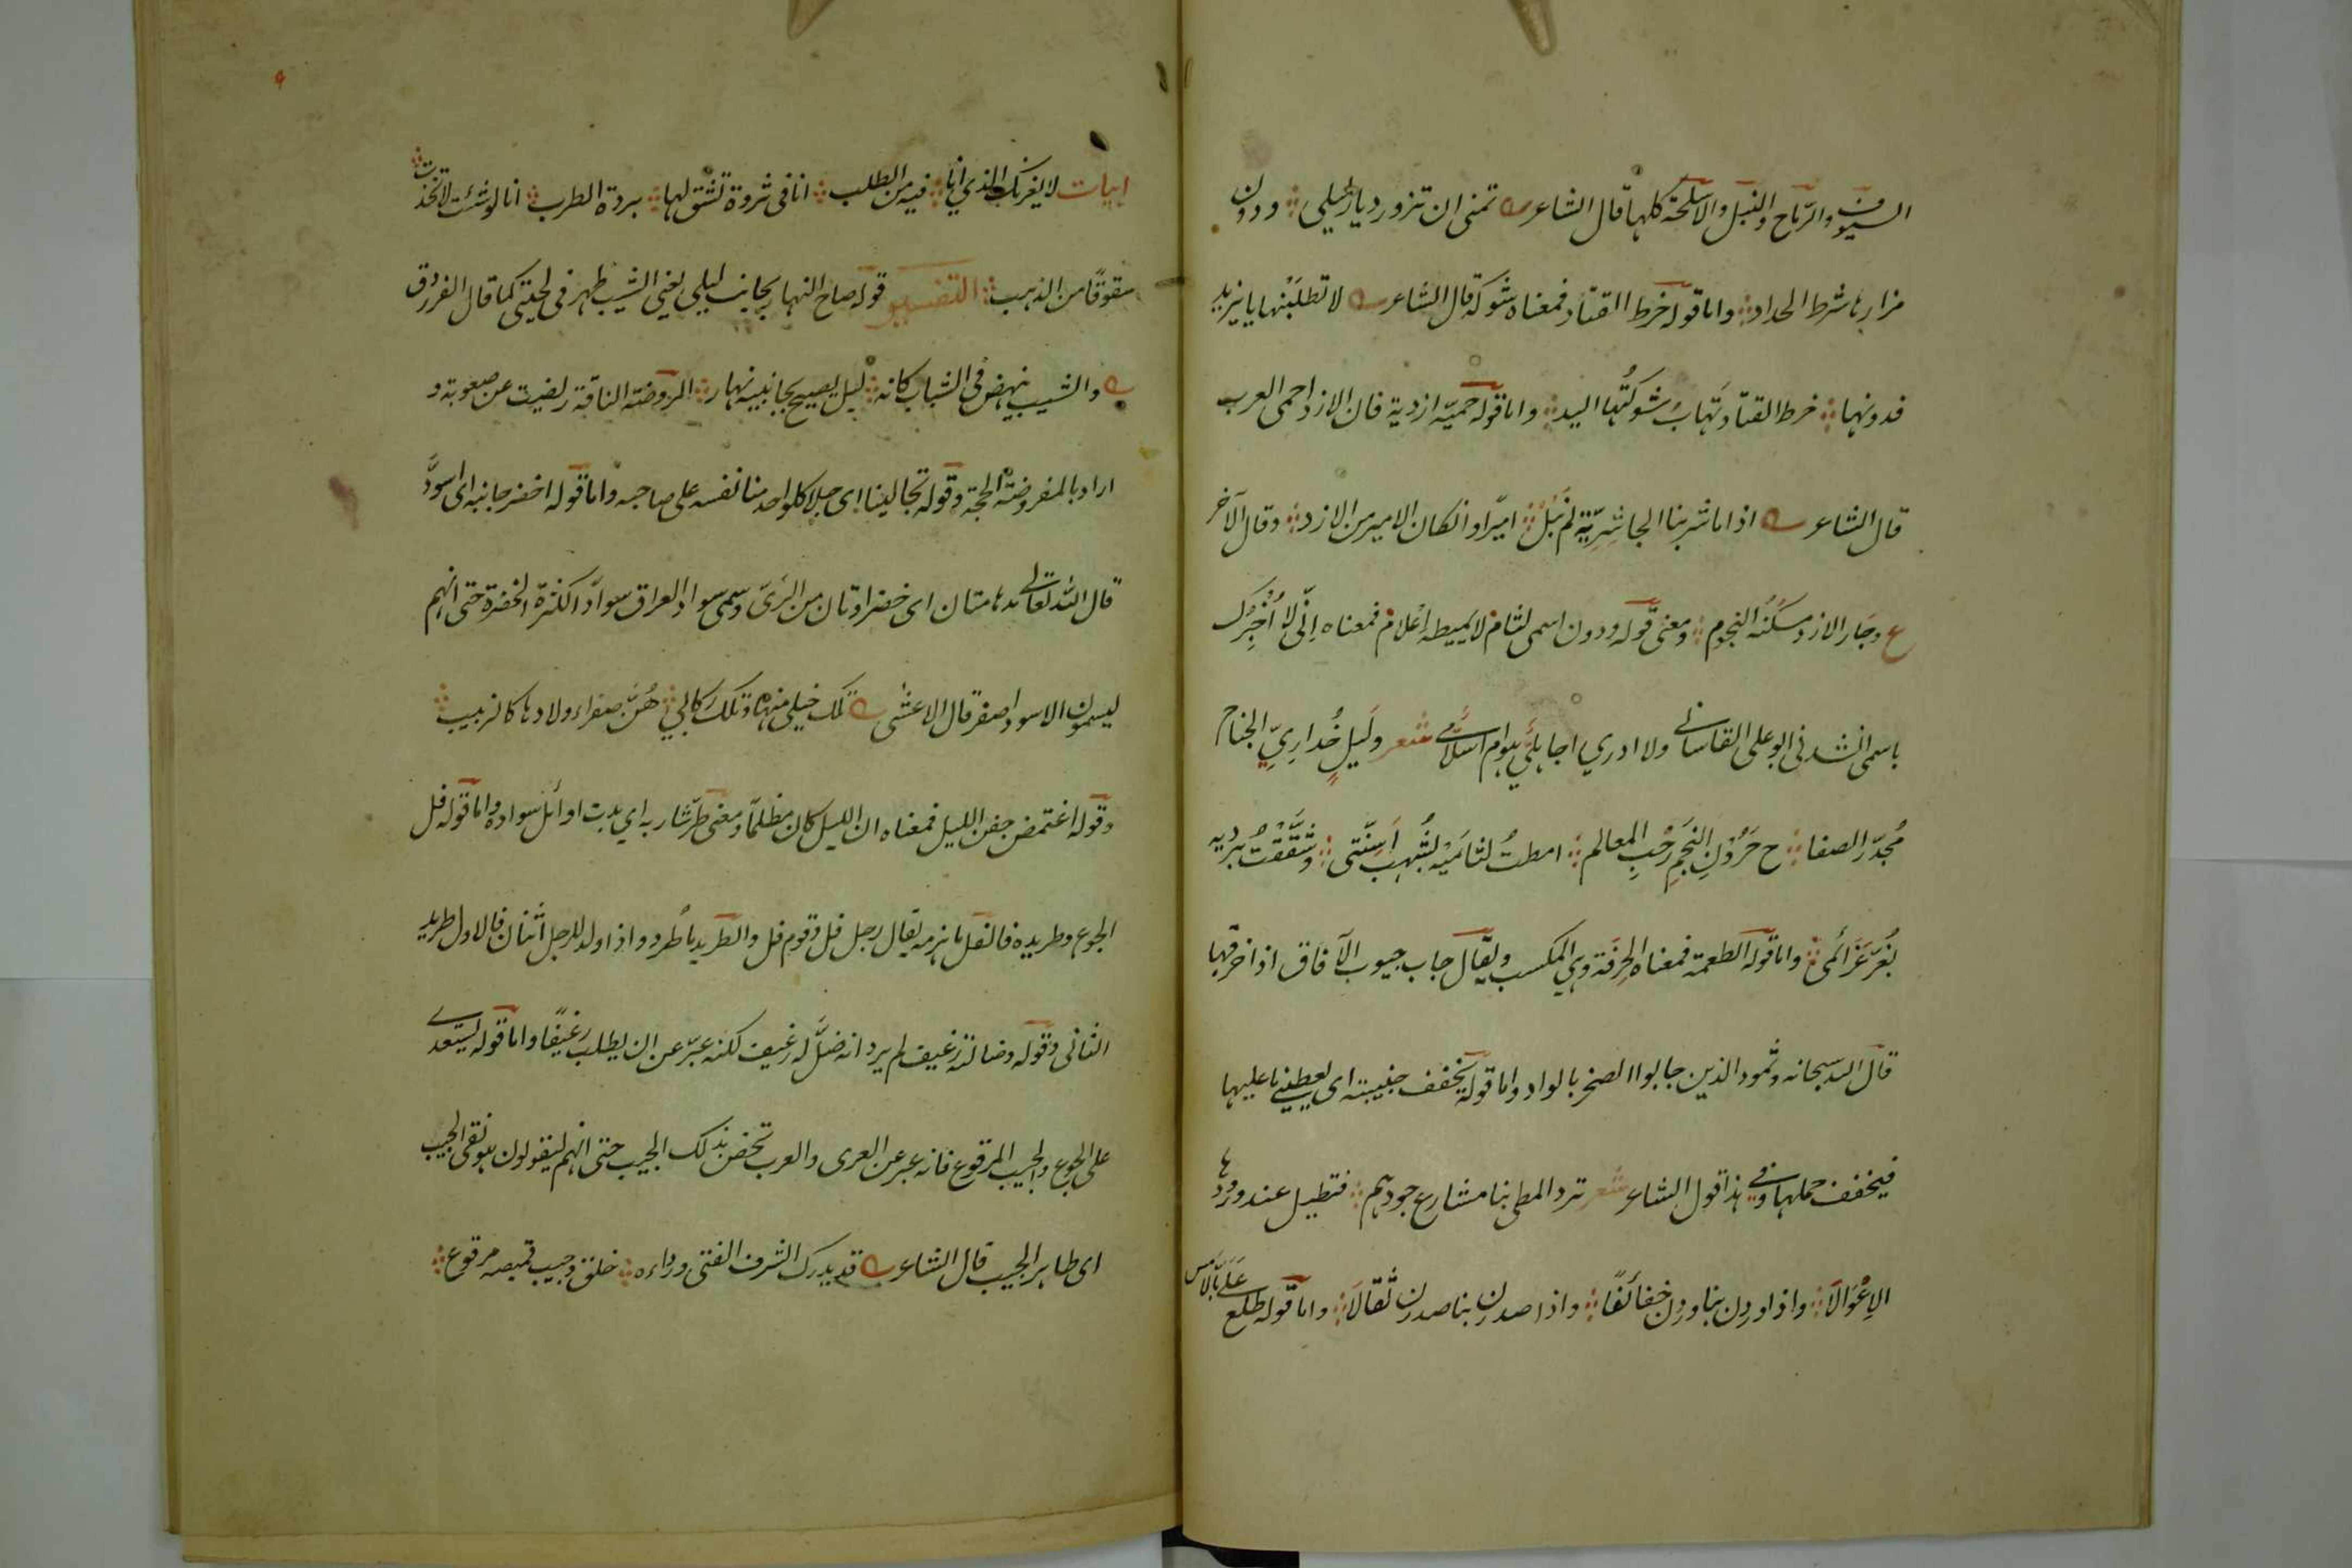 السيوف والرماح والنبل والاسلحة كلها قال الشاعر تمنى ان تزور ديار ليلى ودون
مزارها شرط الحداد واما قوله خرط القتاد فمعناه شوكة قال الشاعر لا تطلبنها يا يزيد
فدونها خرط القتاد تهاب شوكتها اليد واما قوله حميّه ازدية فان الازد احمى العرب
قال الشاعر اذا ما شربنا الجاشرِيّة لم نبل اميرًا وانكان الامير من الازد وقال الآخر
ع وجار الازد مسكنه النجوم ومعنى قوله ودون اسمى لثام لا يميطه اعلام فمعناه اِنّى لا اُخبرك
باسمى انشدنى ابو على القاسانے ولا ادري اجاهلي هو ام اسلامي شعر وليلٍ خُدارِيّ الجناح
الصفا ح حَرُونِ النجمِ رحبِ المعالم امطتُ لثاميه بشُهب اَسِنّتى وشققت برديه
بغُرّ عزائمى واما قوله الطعمة فمعناه الحِرفة وهي المكسب ويقال جاب جيوب الآفاق اذا خرقها
قال الله سبحانه وثمود الذين جابوا الصخر بالواد واما قوله يخفف جنيبته اى يعطينے ما عليها
فيخفف حملها وفي هذا قول الشاعر شعر ترد المطى بنا مشارع جودهم فتطيل عند ورودها
الاِعْوَالَا واذا وردن بنا وردن خفائفًا واذا صدرن بنا صدرن ثقالَا واما قوله طلع علے بالامس
ابيات لا يغرنك الذي انا فيه من الطلب انا فى ثروة تشق لها بردة الطرب انا لو شئت لاتخذت
سقوفًا من الذهب التفسير قوله صاح النهار بجانب ليلى يعنى الشيب ظهر فى لحيتى كما قال الفرزدق
والشيب ينهض فى الشباب كانه ليل يصيح بجانبيه نهار المروضة الناقة ريضت عن صعوبة و
اراد بالمفروضة الحجة وقوله تجالينا اى جلا كل واحد منا نفسه على صاحبه واما قوله اخضر جانبه اى اسودّ
قال الله تعالى مدهامتان اى خضراوتان من الرىّ وسمى سواد العراق سوادًا لكثرة الخضرة حتى انهم
ليسمون الاسود اصفر قال الاعشى تلك خيلى منها وتلك ركابي هُنّ صفر اولادها كالزبيب
وقوله اغتمض جفن الليل فمعناه ان الليل كان مظلمًا ومعنى طرّ شاربه اي بدت اوائل سواده واما قوله فل
الجوع وطريده فالفل ما هزمه يقال رجل فل وقوم فل والطريد ما طرد واذا ولد للرجل اثنان فالاول طريد
الثانى وقوله وضالته رغيف لم يرد انه ضلّ له رغيف لكنه عبّر عن ان يطلب رغيفًا واما قوله يستعدے
على الجوع والجيب المرقوع فانه عبر عن العرى والعرب تخص بذلك الجيب حتى انهم ليقولون هو نقى الجيب
اى طاهر الجيب قال الشاعر قد يدرك الشرف الفتى ورداءه خلق وجيب قميصه مرقوع